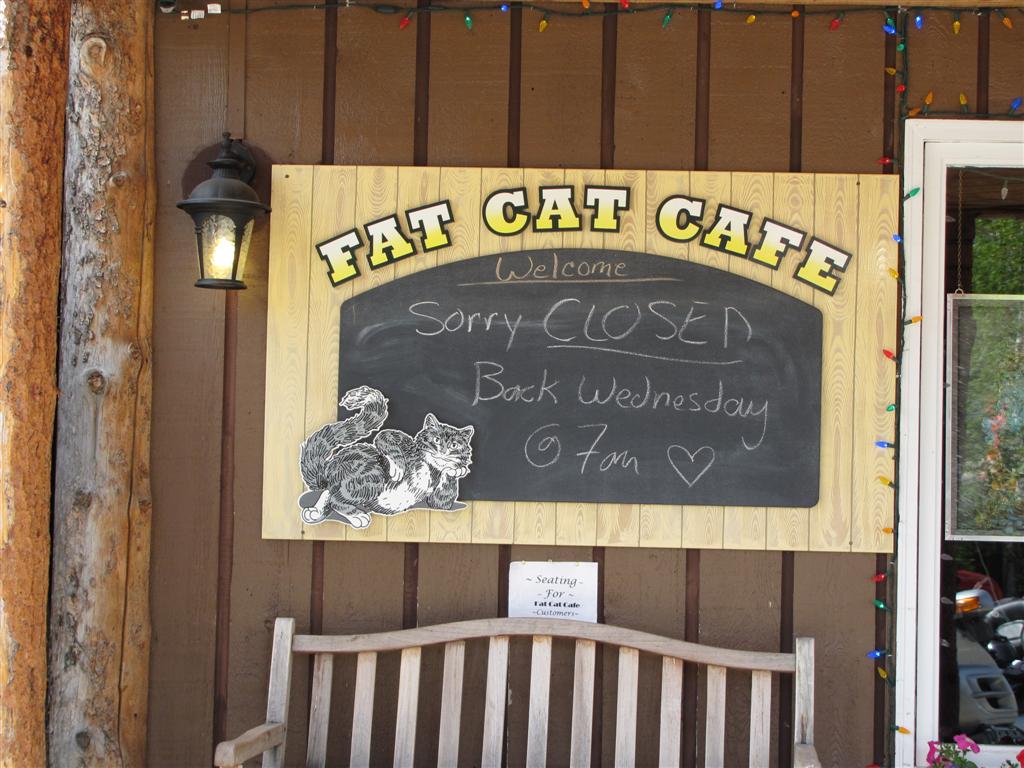 FAT CAT CAFE
Welcome
Sorry CLOSED
Back Wednesday
@ 7am ♡
~ Seating ~
~ For ~
Fat Cat Cafe
~Customers~